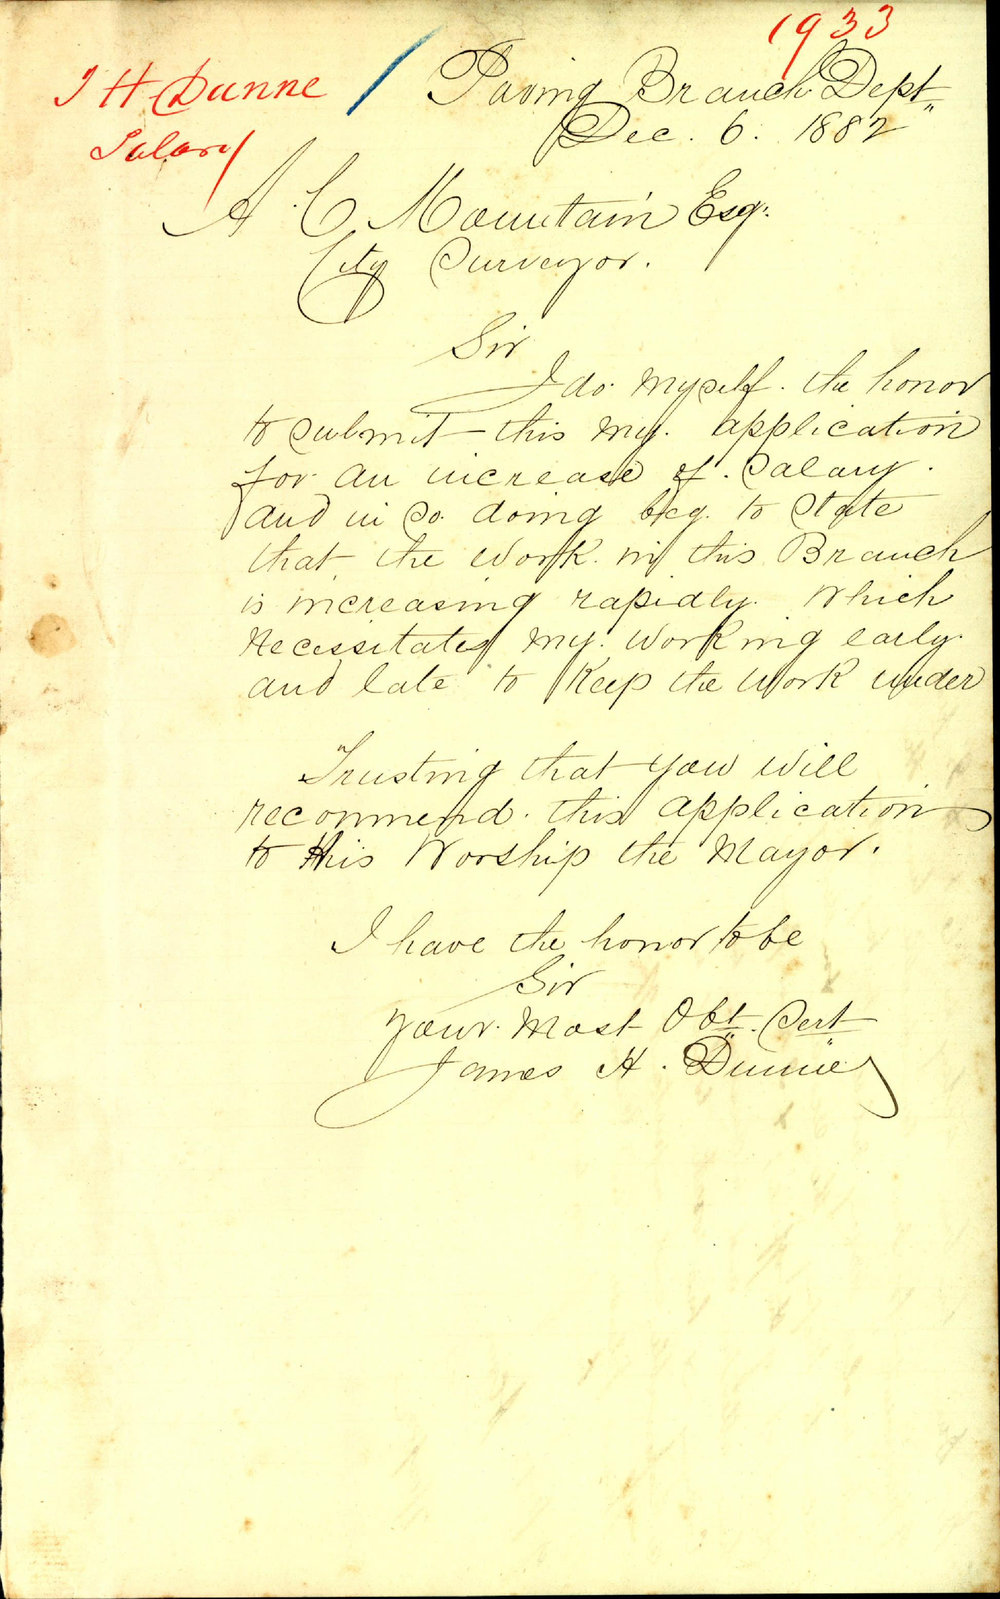 1933
J H Dunne
Salary
Paving Branch Dept
Dec. 6. 1882
A. C. Mountain Esq.
City Surveyor.
Sir
I do myself the honor
to submit this my application
for an increase of Salary.
and in so doing beg to State
that the Work in this Branch
is increasing rapidly. Which
necessitates my working early
and late to Keep the work under
Trusting that you will
recommend this application
to His Worship the Mayor.
I have the honor to be
Sir
Your Most Obt. Sert
James H. Dunne